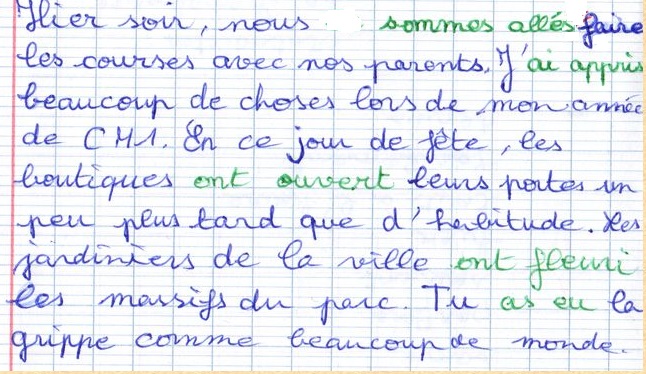 Hier soir, nous sommes allés faire
les courses avec nos parents. J'ai appris
beaucoup de choses lors de mon année
de CM1. En ce jour de fête, les
boutiques ont ouvert leurs portes un
peu plus tard que d'habitude. Les
jardiniers de la ville ont fleuri
les massifs du parc. Tu as eu la
grippe comme beaucoup de monde.